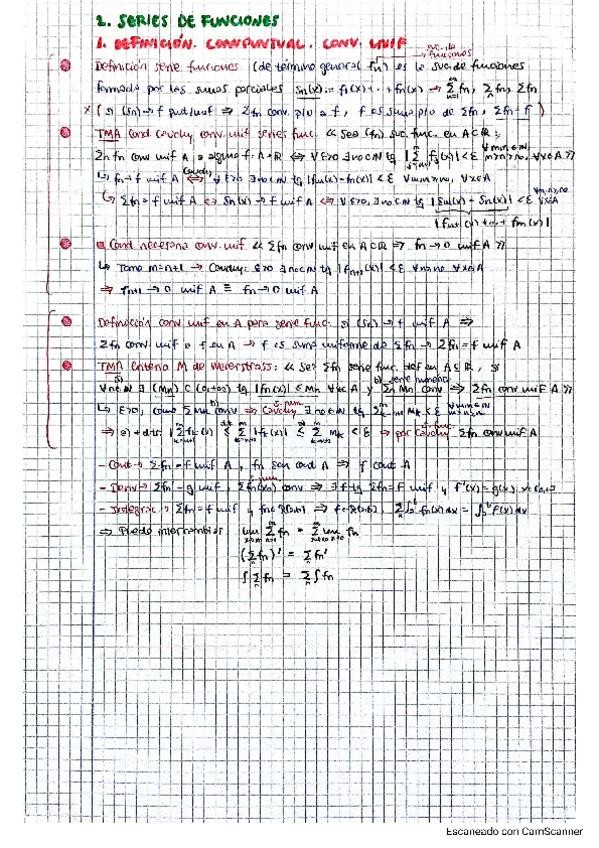 2. SERIES DE FUNCIONES
1. DEFINICIÓN. CONV PUNTUAL. CONV. UNIF
suc. de funciones
Definición serie funciones (de término general fn) es la suc. de funciones
formada por las sumas parciales Sn(x) = f1(x)+...+fn(x) → Σfn, Σfn, Σfn
(si (Sn)→f punt/unif ⇒ Σfn conv. p/u a f, f es suma p/u de Σfn, Σfn=f)
TMA Cond Cauchy conv. unif series func. << Sea (fn) suc. func. en A⊂R;
Σfn conv unif A, a alguna f: A→R ⇔ ∀ε>0 ∃n0∈N tq |Σfj(x)|<ε m>n>n0, ∀x∈A >>
↳ fn→f unif A ⇔ ∀ε>0 ∃n0∈N tq |fm(x)-fn(x)|<ε ∀m,n≥n0, ∀x∈A
Cauchy
↳ Σfn=f unif A ⇔ Sn(x)→f unif A ⇔ ∀ε>0, ∃n0∈N tq |Sm(x)-Sn(x)|<ε ∀x∈A
|fn+1(x)+...+fm(x)|
Cond necesaria conv. unif << Σfn conv unif en A⊂R ⇒ fn→0 unif A >>
↳ Tomo m=n+1 → Cauchy: ε>0 ∃n0∈N tq |fn+1(x)|<ε ∀n≥n0 ∀x∈A
⇒ fn+1→0 unif A ≡ fn→0 unif A
Definición conv unif en A para serie func. si (Sn)→f unif A ⇒
Σfn conv. unif a f en A → f es suma uniforme de Σfn → Σfn=f unif A
TMA Criterio M de Weierstrass: << Sea Σfn serie func. def en A⊂R, si
∀n∈N ∃ (Mn) ⊂ (0,+∞) tq |fn(x)|≤Mn ∀x∈A y Σn Mn conv ⇒ Σfn conv unif A >>
serie numérica
↳ ε>0, como ΣMk conv ⇒ Cauchy ∃n0∈N tq Σ Mk<ε
⇒ |Σfk(x)| ≤ Σ|fk(x)| ≤ ΣMk<ε ⇒ por Cauchy Σfn conv unif A
- Cont → Σfn=f unif A, fn son cont A ⇒ f cont A
- Deriv → Σfn'=g unif, Σfn(x0) conv ⇒ ∃f tq Σfn=f unif y f'(x)=g(x)
- Integrac → Σfn=f unif y fn∈R(a,b) ⇒ f∈R(a,b), Σ∫fn(x)dx = ∫f(x)dx
⇒ Puedo intercambiar lim Σfn = Σ lim fn
(Σfn)' = Σfn'
∫Σfn = Σ∫fn
Escaneado con CamScanner